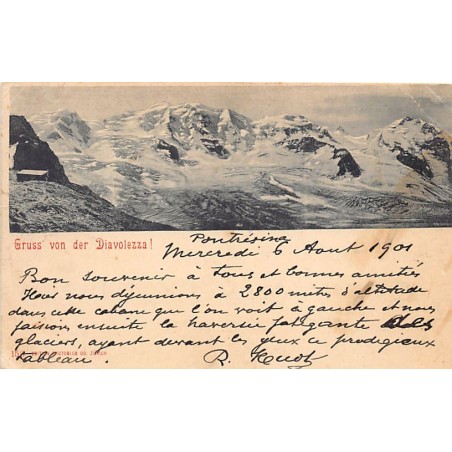 Gruss von der Diavolezza!
Pontrésina
Mercredi 6 Aout 1901
Bon souvenir à tous et bonnes amitiés
Nous déjeunions à 2800 mètres d'altitude
dans cette cabane que l'on voit à gauche et nous
faisions ensuite la traversée fatigante des
glaciers, ayant devant les yeux ce prodigieux
tableau. R. Huot